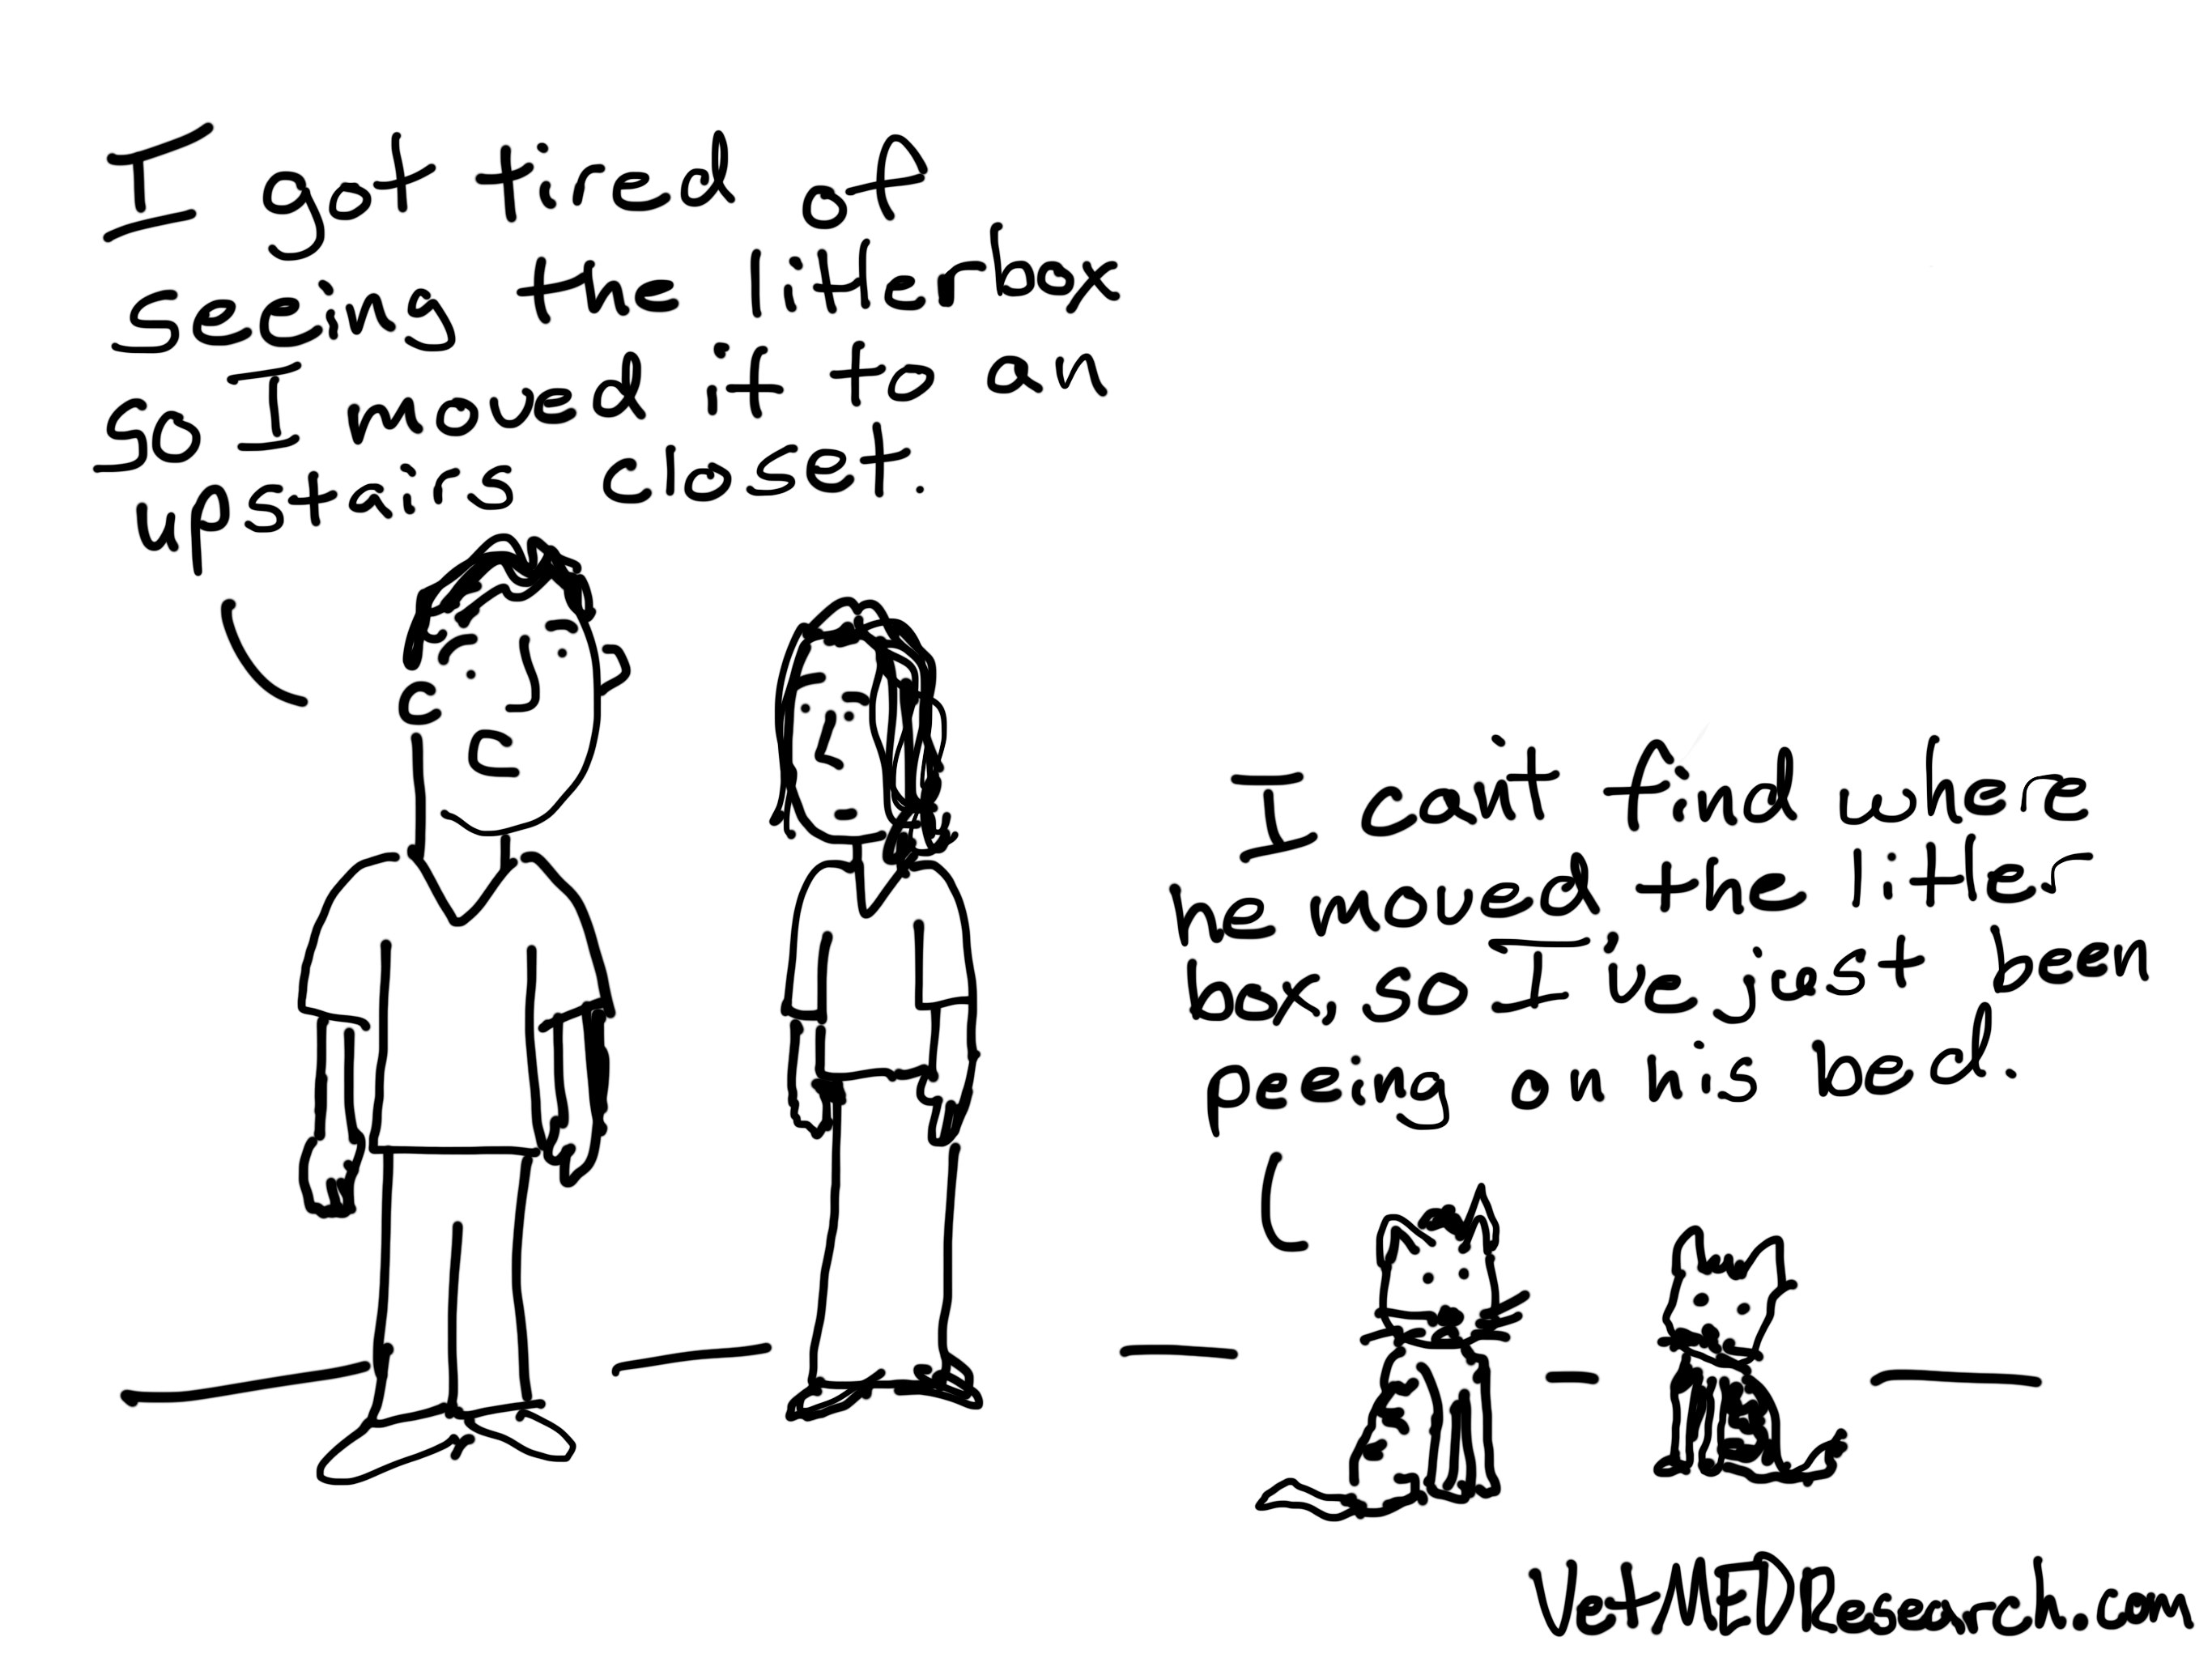 I got tired of
seeing the litterbox
so I moved it to an
upstairs closet.
I can't find where
he moved the litter
box, so I've just been
peeing on his bed.
VetMEDResearch.com